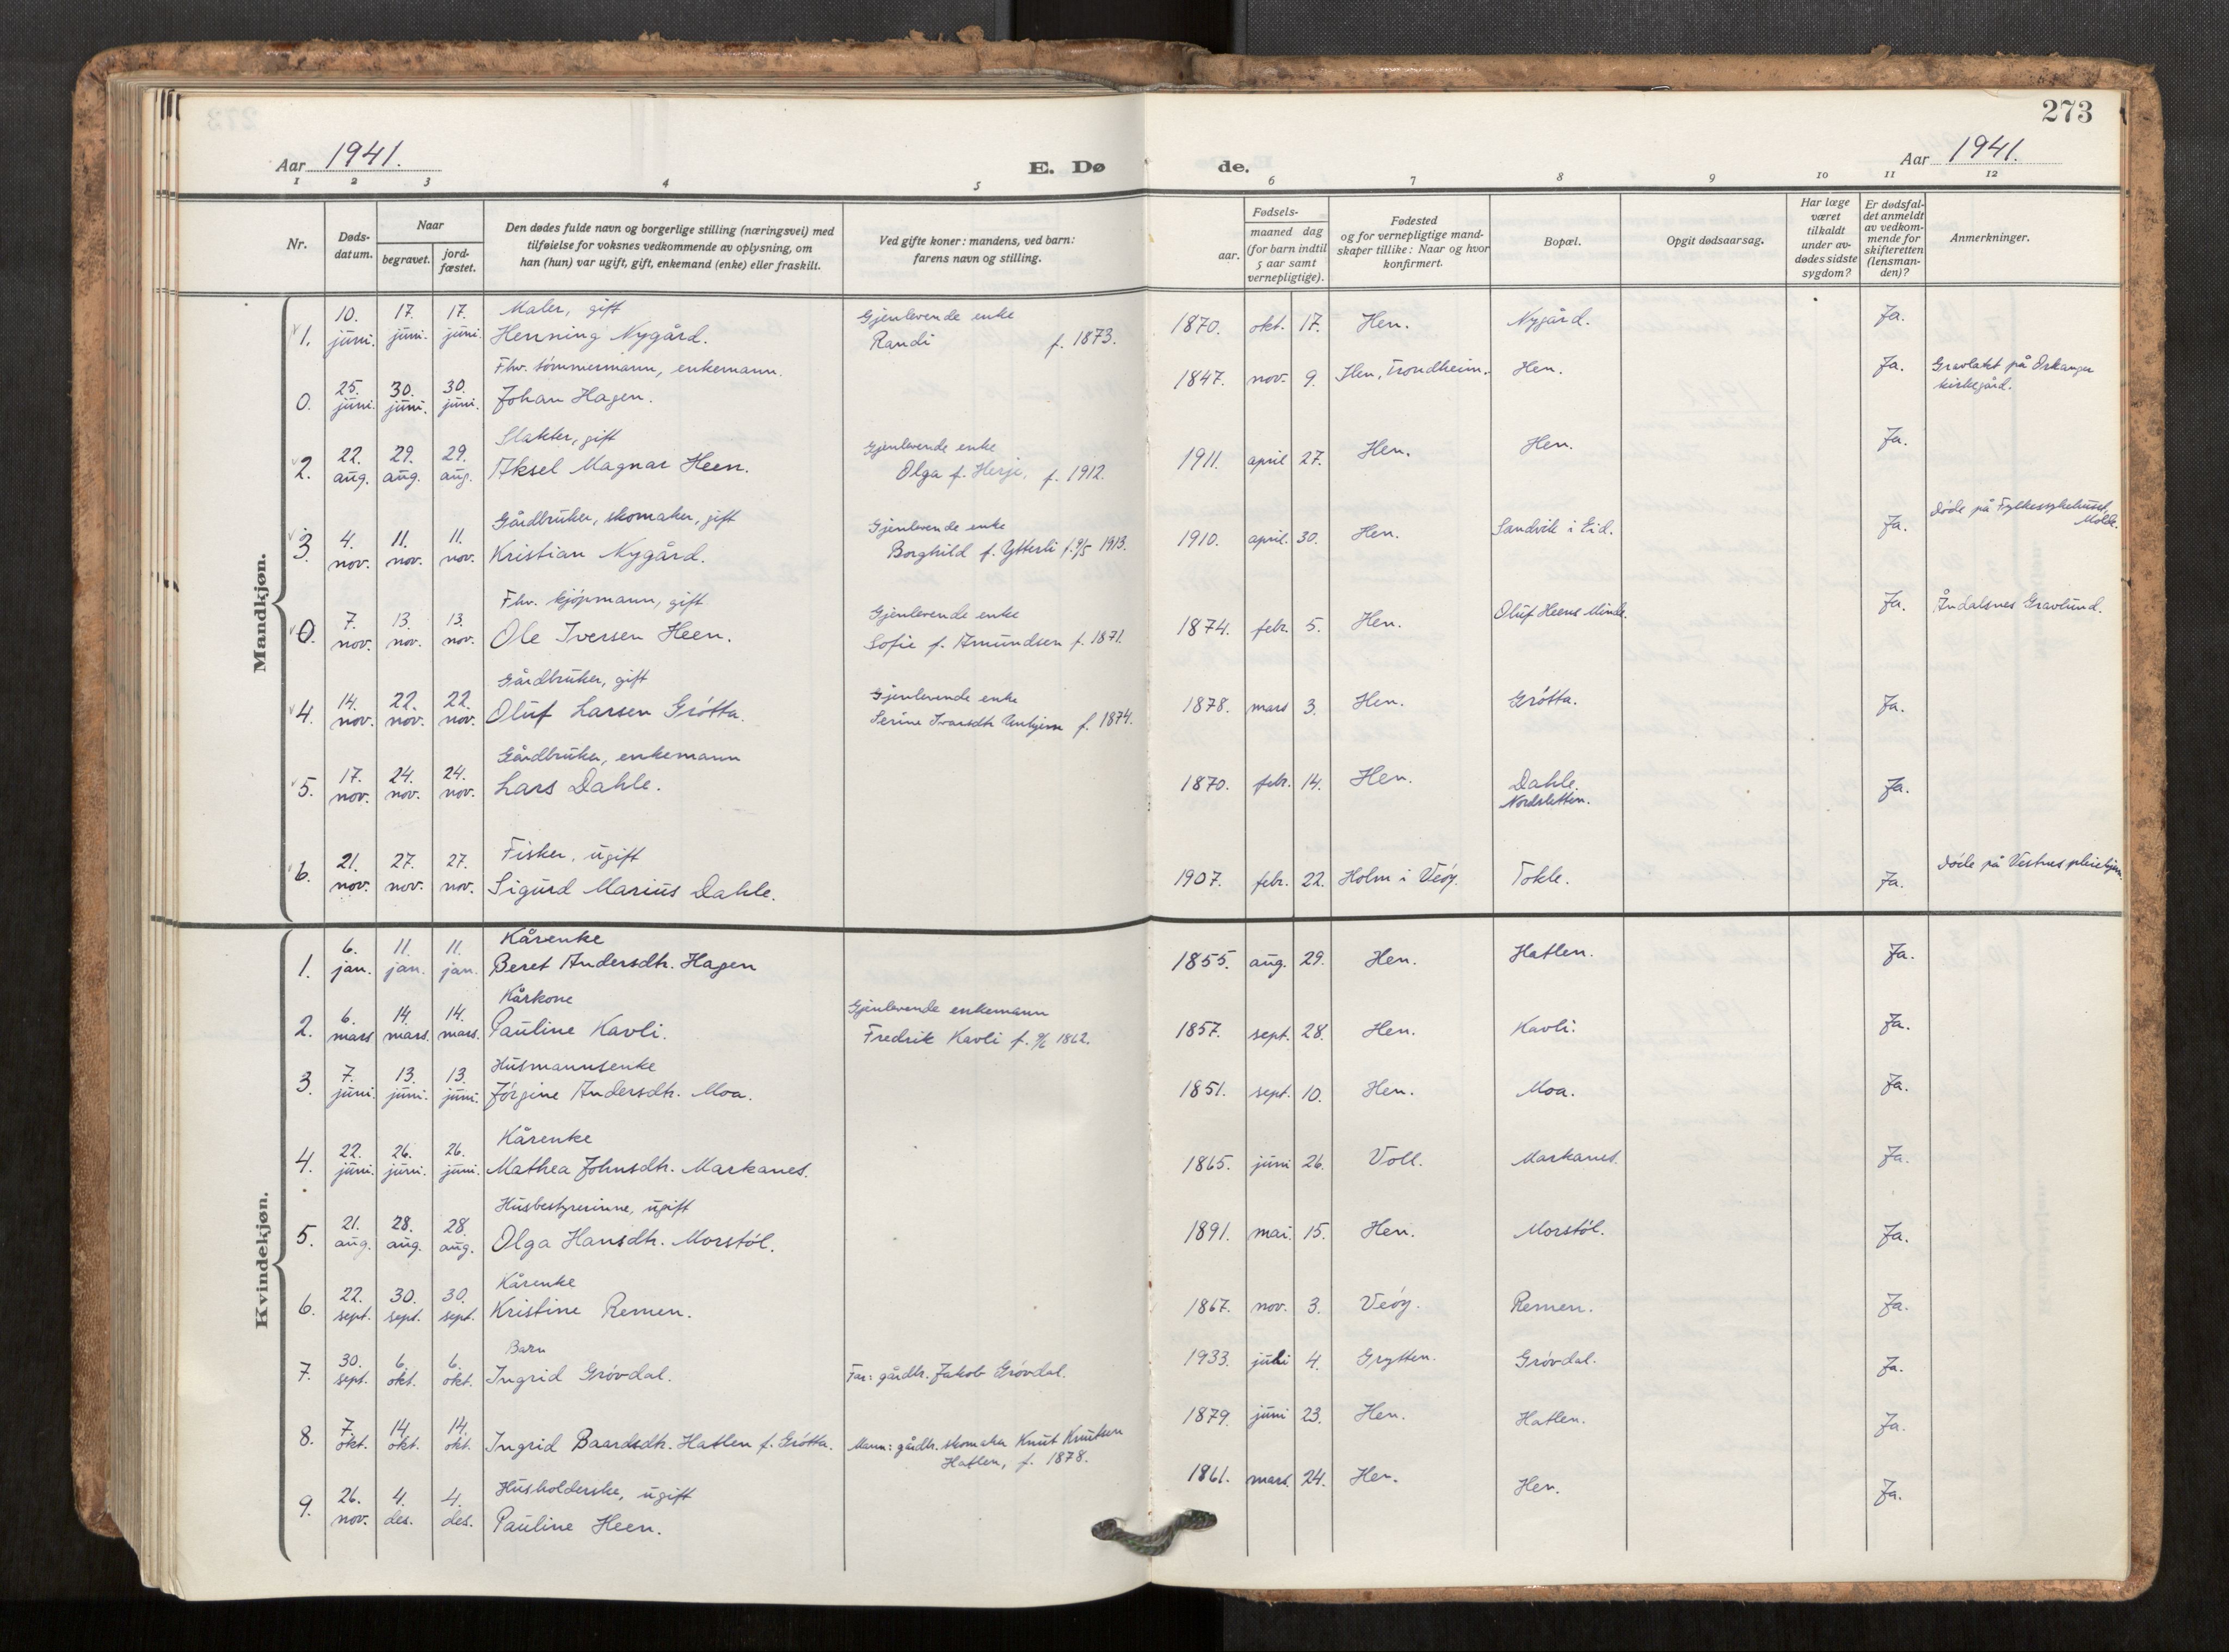 273
Aar 1941.
E. Dø de.
Aar 1941.
1 2 3 4 5 6 7 8 9 10 11 12
Nr.
Døds-
datum.
Naar
begravet.
jord-
fæstet.
Den dødes fulde navn og borgerlige stilling (næringsvei) med
tilføielse for voksnes vedkommende av oplysning, om
han (hun) var ugift, gift, enkemand (enke) eller fraskilt.
Ved gifte koner: mandens, ved barn:
farens navn og stilling.
Fødsels-
aar.
maaned dag
(for barn indtil
5 aar samt
vernepligtige).
Fødested
og for vernepligtige mand-
skaper tillike: Naar og hvor
konfirmert.
Bopæl.
Opgit dødsaarsag.
Har læge
været
tilkaldt
under av-
dødes sidste
sygdom?
Er dødsfal-
det anmeldt
av vedkom-
mende for
skifteretten
(lensman-
den)?
Anmerkninger.
Mandkjøn.
10. 17. 17. Maler, gift Gjenlevende enke
1. juni. juni. juni. Henning Nygård. Randi f. 1873. 1870. okt. 17. Hen. Nygård. Ja.
Fhv. tømmermann, enkemann.
25. 30. 30. 1847. nov. 9. Ilen, Trondheim. Hen. Ja. Gravlakt på Orkanger
0. juni. juni. juni. Johan Hagen. kirkegård.
22. 29. 29. Slakter, gift Gjenlevende enke
2. aug. aug. aug. Aksel Magnar Heen. Olga f. Herje, f. 1912. 1911. april 27. Hen. Hen. Ja.
4. 11. 11. Gårdbruker, skomaker, gift Gjenlevende enke døde på Fylkessykehuset,
Molde.
3. nov. nov. nov. Kristian Nygård. Borghild f. Ytterli f. 9/5 1913. 1910. april. 30. Hen. Sandvik i Eid. Ja.
7. 13. 13. Fhv. kjøpmann, gift Gjenlevende enke
0. nov. nov. nov. Ole Iversen Heen. Sofie f. Amundsen f. 1871. 1874. febr. 5. Hen. Oluf Heens Minde. Ja. Åndalsnes Gravlund.
14. 22. 22. Gårdbruker, gift Gjenlevende enke
4. nov. nov. nov. Oluf Larsen Grøtta. Serine Ivarsdtr. Unhjem f. 1874. 1878. mars 3. Hen. Grøtta. Ja.
17. 24. 24. Gårdbruker, enkemann
5. nov. nov. nov. Lars Dahle. 1870. febr. 14. Hen. Dahle. Ja.
Nordsletten.
21. 27. 27. Fisker, ugift
6. nov. nov. nov. Sigurd Marius Dahle. 1907. febr. 22. Holm i Veøy. Tokle. Ja. døde på Vestnes pleiehjem.
Kvindekjøn.
6. 11. 11. Kårenke
1. jan. jan. jan. Beret Andersdtr. Hagen 1855. aug. 29. Hen. Hatlen. Ja.
6. 14. 14. Kårkone Gjenlevende enkemann
2. mars mars. mars. Pauline Kavli. Fredrik Kavli f. 9/6 1862. 1857. sept. 28. Hen. Kavli. Ja.
7. 13. 13. Husmannsenke
3. juni. juni. juni. Jørgine Andersdtr. Moa. 1851. sept. 10. Hen. Moa. Ja.
22. 26. 26. Kårenke
4. juni. juni. juni. Mathea Johnsdtr. Markanes. 1865. juni 26. Voll. Markanes. Ja.
21. 28. 28. Husbestyrerinne, ugift
5. aug. aug. aug. Olga Hansdtr. Morstøl. 1891. mai. 15. Hen. Morstøl. Ja.
22. 30. 30. Kårenke
6. sept. sept. sept. Kristine Remen. 1867. nov. 3. Veøy. Remen. Ja.
30. 6. 6. Barn
7. sept. okt. okt. Ingrid Grøvdal. Far: gårdbr. Jakob Grøvdal. 1933. juli 4. Grytten. Grøvdal. Ja.
7. 14. 14.
8. okt. okt. okt. Ingrid Baardsdtr. Hatlen f. Grøtta. Mann: gårdbr. skomaker Knut Knutsen 1879. juni 23. Hen. Hatlen. Ja.
Hatlen, f. 1878.
26. 4. 4. Husholderske, ugift
9. nov. des. des. Pauline Heen. 1861. mars. 24. Hen. Hen. Ja.